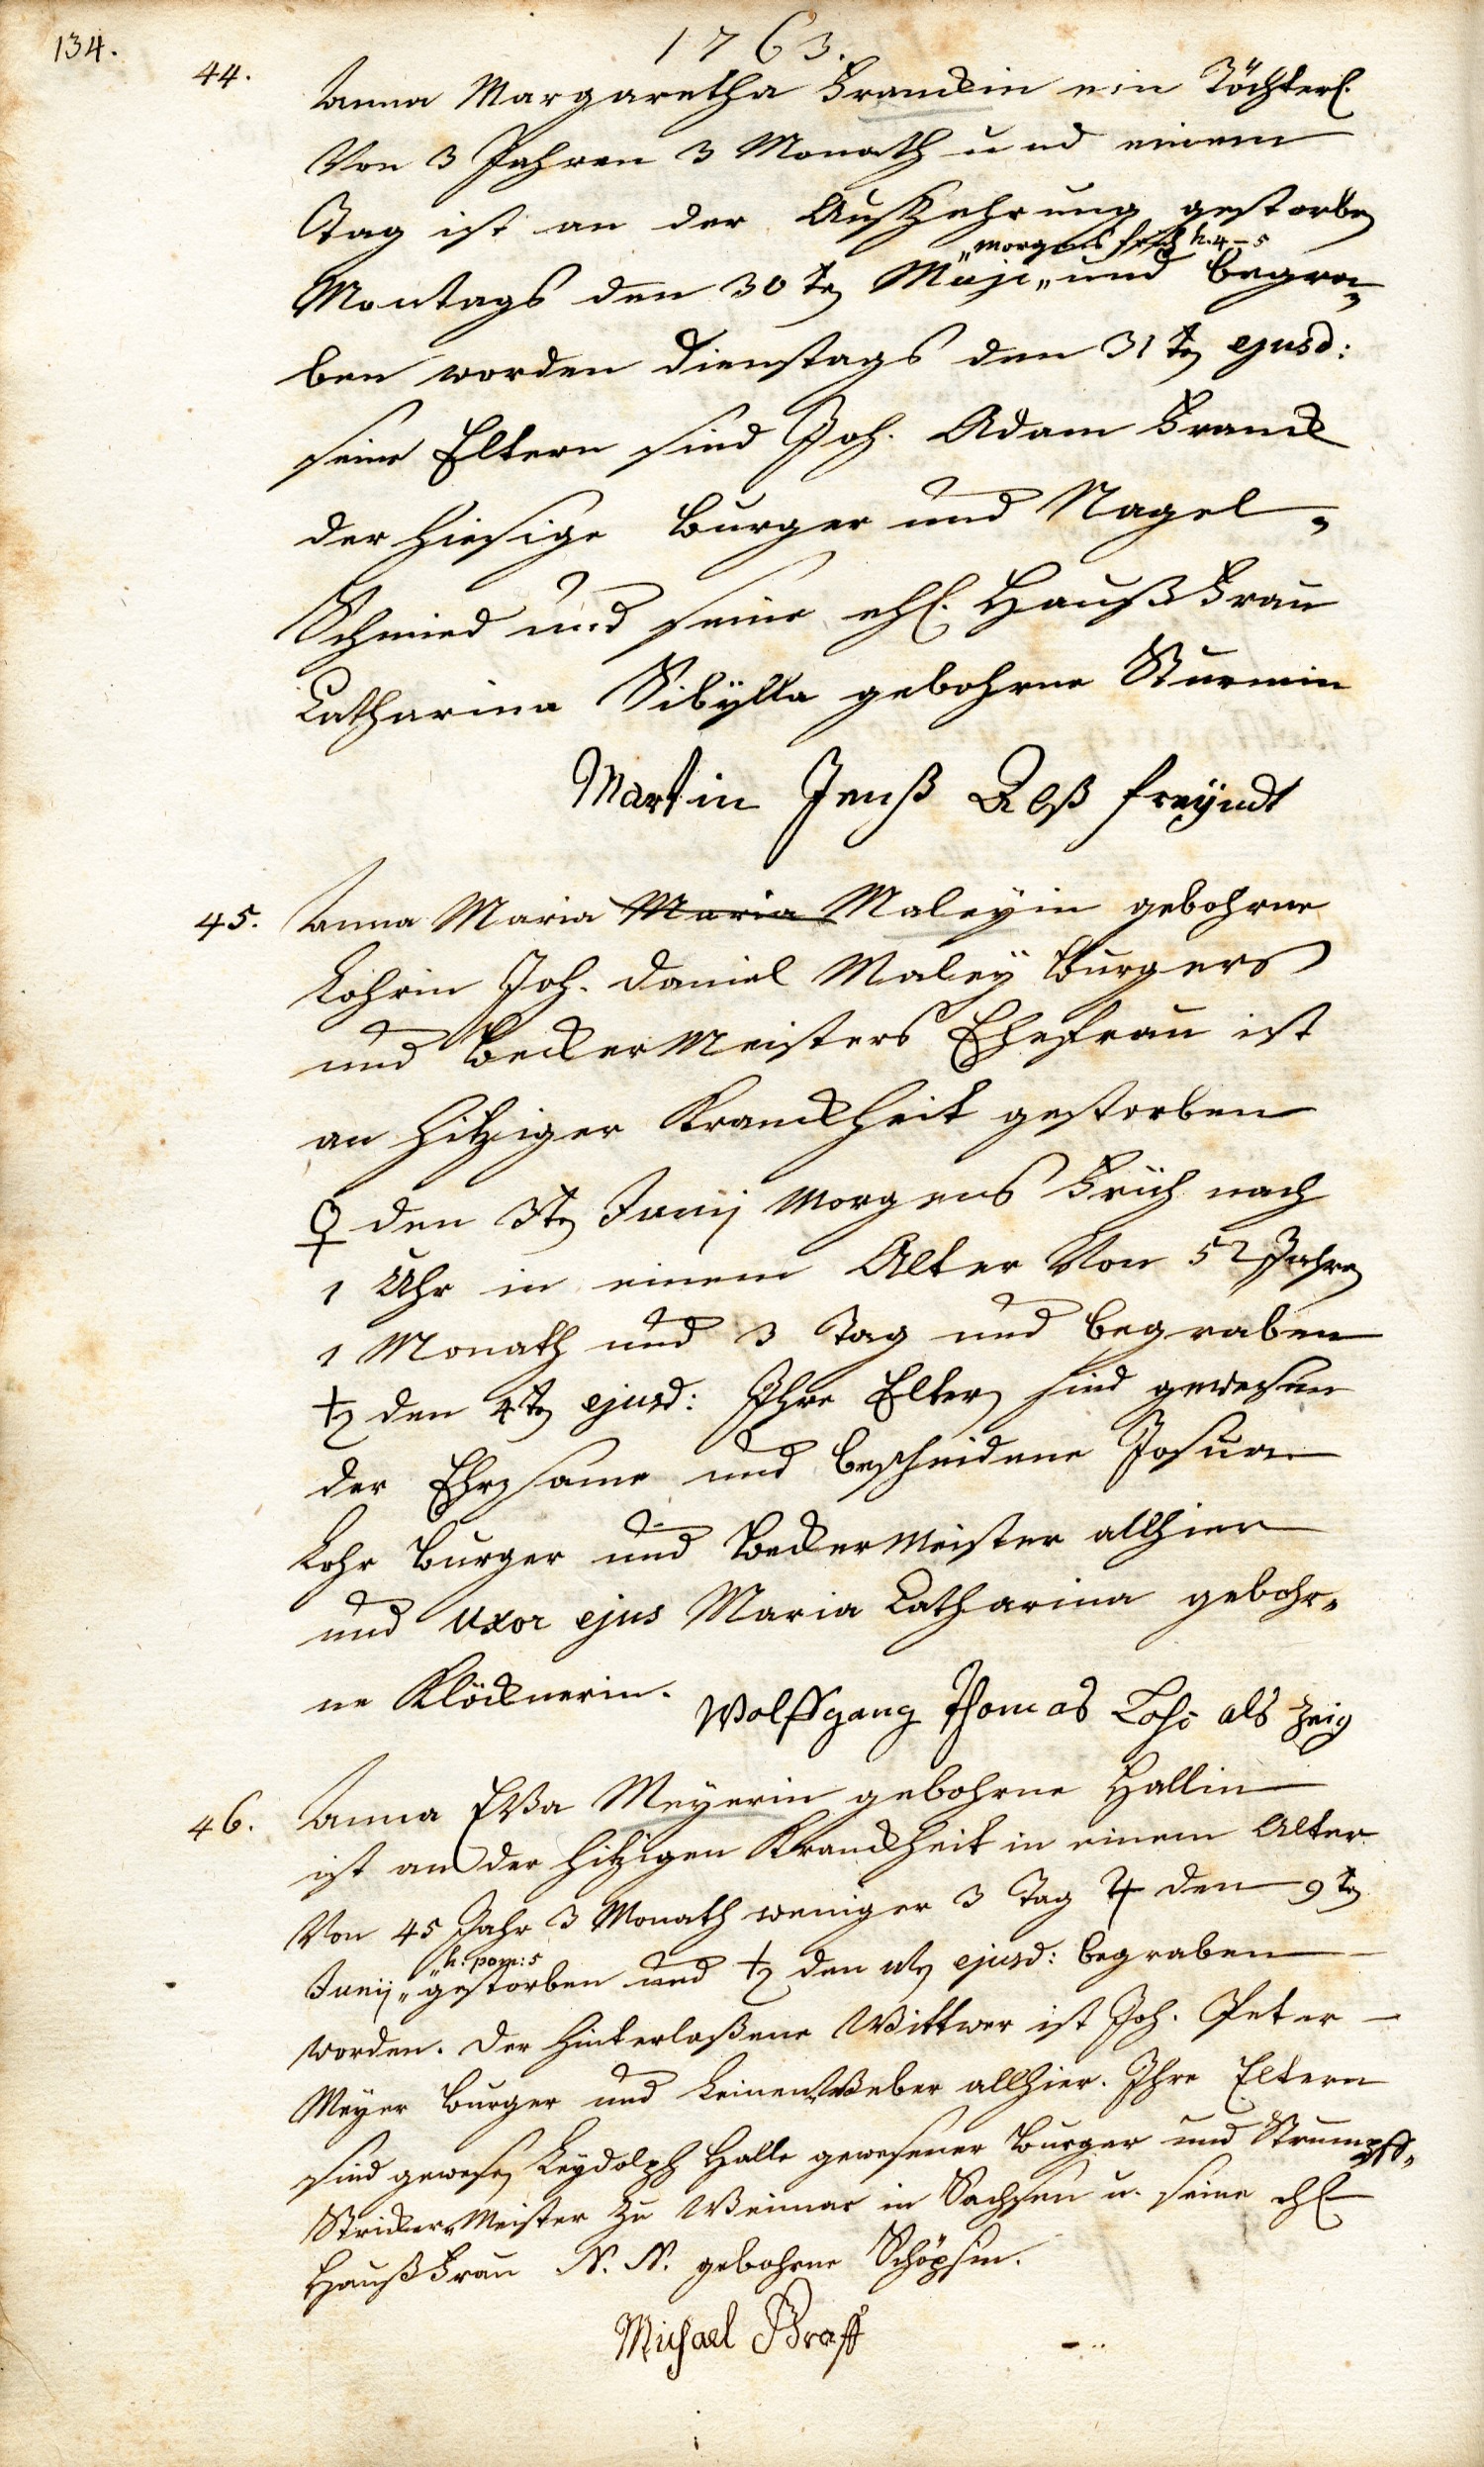 134.
1763.
44. Anna Margaretha Franckin ein Töchterl.
Von 3 Jahren 3 Monath und einem
Tag ist an der Auszehrung gestorben
„morgens früh h. 4–5
Montags den 30ten Maji „ und begra„
ben worden Dienstags den 31ten ejusd:
seine Eltern sind Joh. Adam Franck
der hiesige Burger und Nagel„
Schmied und seine ehl. Haußfrau
Catharina Sibÿlla gebohrne Sturmin
Martin Jenß Alß freÿndt
45. Anna Maria Maria Maleÿin gebohrne
Lohrin Joh. Daniel Maleÿ Burgers
und Becker Meisters Ehefrau ist
an hitziger Kranckheit gestorben
♀ den 3ten Junij Morgens früh nach
1 Uhr in einem Alter Von 52 Jahren
1 Monath und 3 Tag und begraben
♄ den 4ten ejusd: Ihre Eltern sind gewesen
der Ehrsame und bescheidene Josua
Lohr Burger und Becker Meister allhier
und Uxor ejus Maria Catharina gebohr„
ne Klöcknerin.
Wolffgang Thomas Lohr als zeig
46. Anna Eva Meÿerin gebohrne Hallin
ist an der hitzigen Kranckheit in einem Alter
Von 45 Jahr 3 Monath weniger 3 Tag ♃ den 9ten
„h. pom: 5
Junij „ gestorben und ♄ den 11ten ejusd: begraben
worden. Der hinterlaßene Wittwer ist Joh. Peter
Meÿer Burger und Leinen Weber allhier. Ihre Eltern
sind gewesen Leÿdolph Halle gewesener Burger und Strumpff„
Stricker Meister zu Weimar in Sachsen u. seine ehl
Haußfrau N. N. gebohrne Schöpsin.
Michael Braff